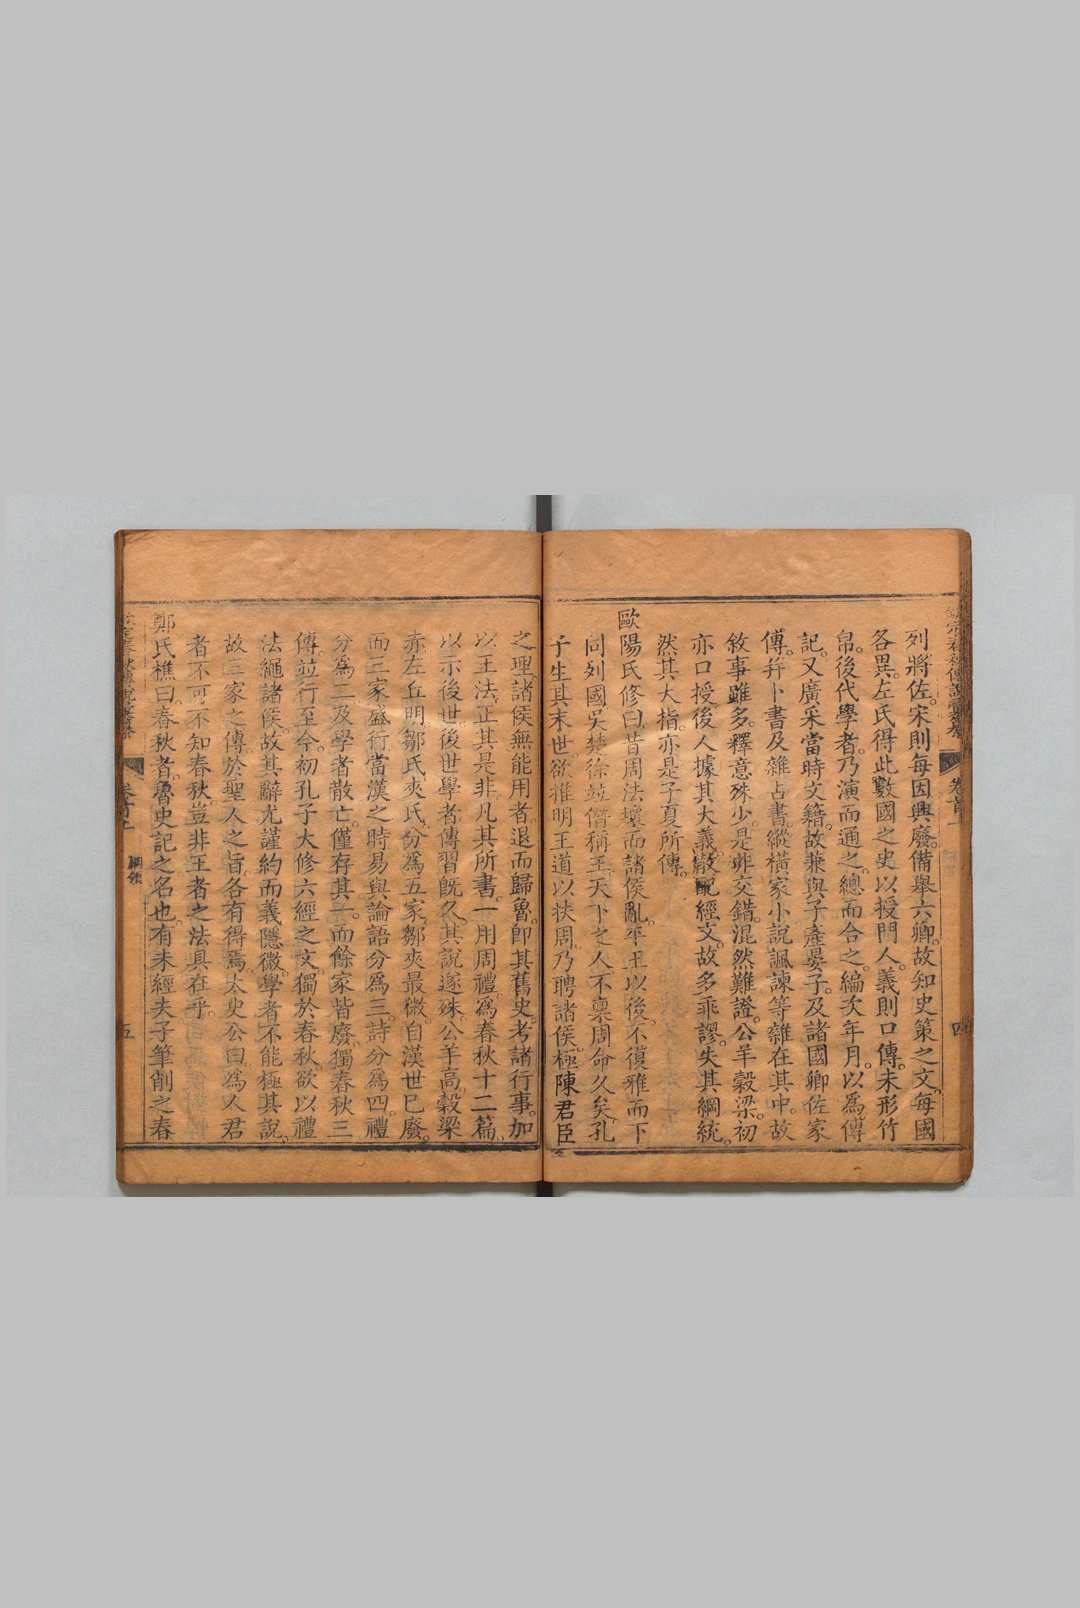 列將佐。宋則每因興廢。備舉六卿。故知史策之文。每國
各異。左氏得此數國之史。以授門人。義則口傳。未形竹
帛。後代學者。乃演而通之。總而合之。編次年月。以爲傳
記。又廣采當時文籍。故兼與子產晏子。及諸國卿佐家
傳。幷卜書及雜占書。縱橫家小說諷諫等。雜在其中。故
敘事雖多。釋意殊少。是非交錯。混然難證。公羊穀梁。初
亦口授。後人據其大義。散配經文。故多乖謬。失其綱統。
然其大指。亦是子夏所傳。
歐陽氏修曰。昔周法壞而諸侯亂。平王以後。不復雅而下
同列國。吳楚徐竝僭稱王。天下之人不稟周命久矣。孔
子生其末世。欲推明王道以扶周。乃聘諸侯。極陳君臣
之理。諸侯無能用者。退而歸魯。卽其舊史。考諸行事。加
以王法。正其是非。凡其所書。一用周禮。爲春秋十二篇。
以示後世。後世學者。傳習旣久。其說遂殊。公羊高。穀梁
赤。左丘明。鄒氏夾氏。分爲五家。鄒夾最微。自漢世已廢。
而三家盛行。當漢之時。易與論語分爲三。詩分爲四。禮
分爲二。及學者散亡。僅存其一。而餘家皆廢。獨春秋三
傳竝行至今。初孔子大修六經之文。獨於春秋。欲以禮
法繩諸侯。故其辭尤謹約而義隱微。學者不能極其說。
故三家之傳。於聖人之旨。各有得焉。太史公曰。爲人君
者不可不知春秋。豈非王者之法具在乎。
鄭氏樵曰。春秋者。魯史記之名也。有未經夫子筆削之春
卷首上
綱領
四
五